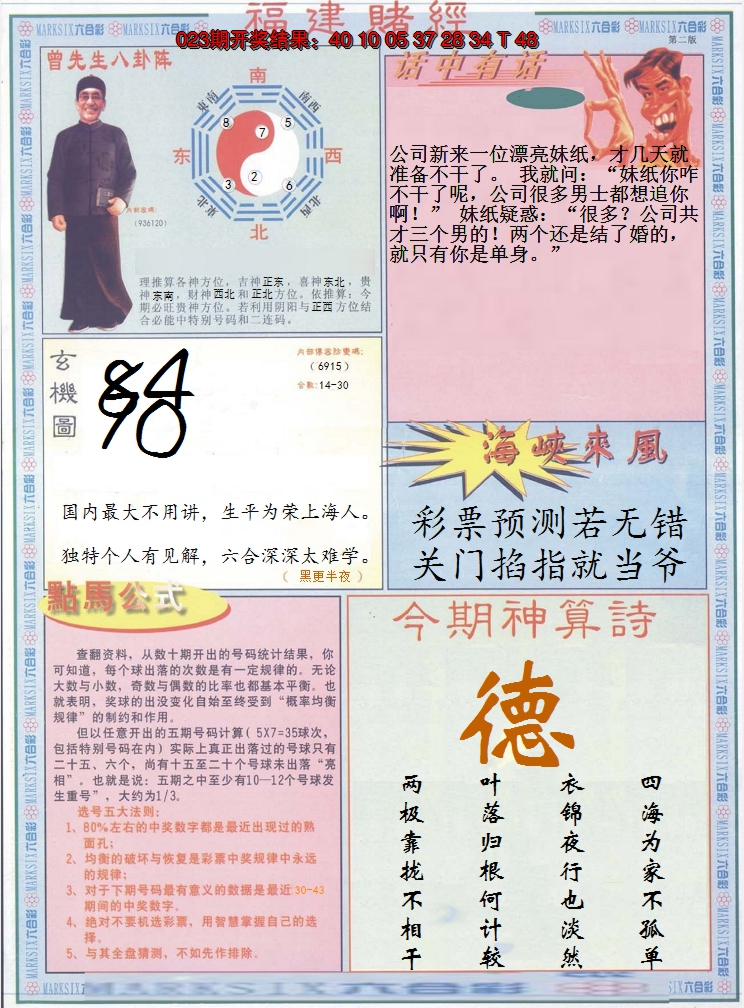 福建賭經
023期开奖结果：40 10 05 37 28 34 T 48
MARKSIX六合彩 MARKSIX六合彩 MARKSIX六合彩 MARKSIX六合彩
第二版
曾先生八卦阵
南
东南
南西
8
5
7
东
西
2
3
6
东北
北西
北
内部密碼：
（936120）
理推算各神方位，吉神正东，喜神东北，贵
神东南，财神西北和正北方位。依推算：今
期必旺贵神方位。若利用阴阳与正西方位结
合必能中特别号码和二连码。
话中有话
公司新来一位漂亮妹纸，才几天就
准备不干了。 我就问：“妹纸你咋
不干了呢，公司很多男士都想追你
啊！” 妹纸疑惑：“很多？公司共
才三个男的！两个还是结了婚的，
就只有你是单身。”
玄機圖
84
90
内部傳密防變碼：
（6915）
合数：14-30
国内最大不用讲，生平为荣上海人。
独特个人有见解，六合深深太难学。
（ 黑更半夜 ）
海峽來風
彩票预测若无错
关门掐指就当爷
點馬公式
查翻资料，从数十期开出的号码统计结果，你
可知道，每个球出落的次数是有一定规律的。无论
大数与小数，奇数与偶数的比率也都基本平衡。也
就表明，奖球的出没变化自始至终受到“概率均衡
规律”的制约和作用。
但以任意开出的五期号码计算（5X7=35球次，
包括特别号码在内）实际上真正出落过的号球只有
二十五、六个，尚有十五至二十个号球未出落“亮
相”。也就是说：五期之中至少有10—12个号球发
生重号”，大约为1/3。
选号五大法则：
1、80%左右的中奖数字都是最近出现过的熟
面孔；
2、均衡的破坏与恢复是彩票中奖规律中永远
的规律；
3、对于下期号码最有意义的数据是最近30-43
期间的中奖数字。
4、绝对不要机选彩票，用智慧掌握自己的选
择。
5、与其全盘猜测，不如先作排除。
今期神算詩
德
四海为家不孤单
衣锦夜行也淡然
叶落归根何计较
两极靠拢不相干